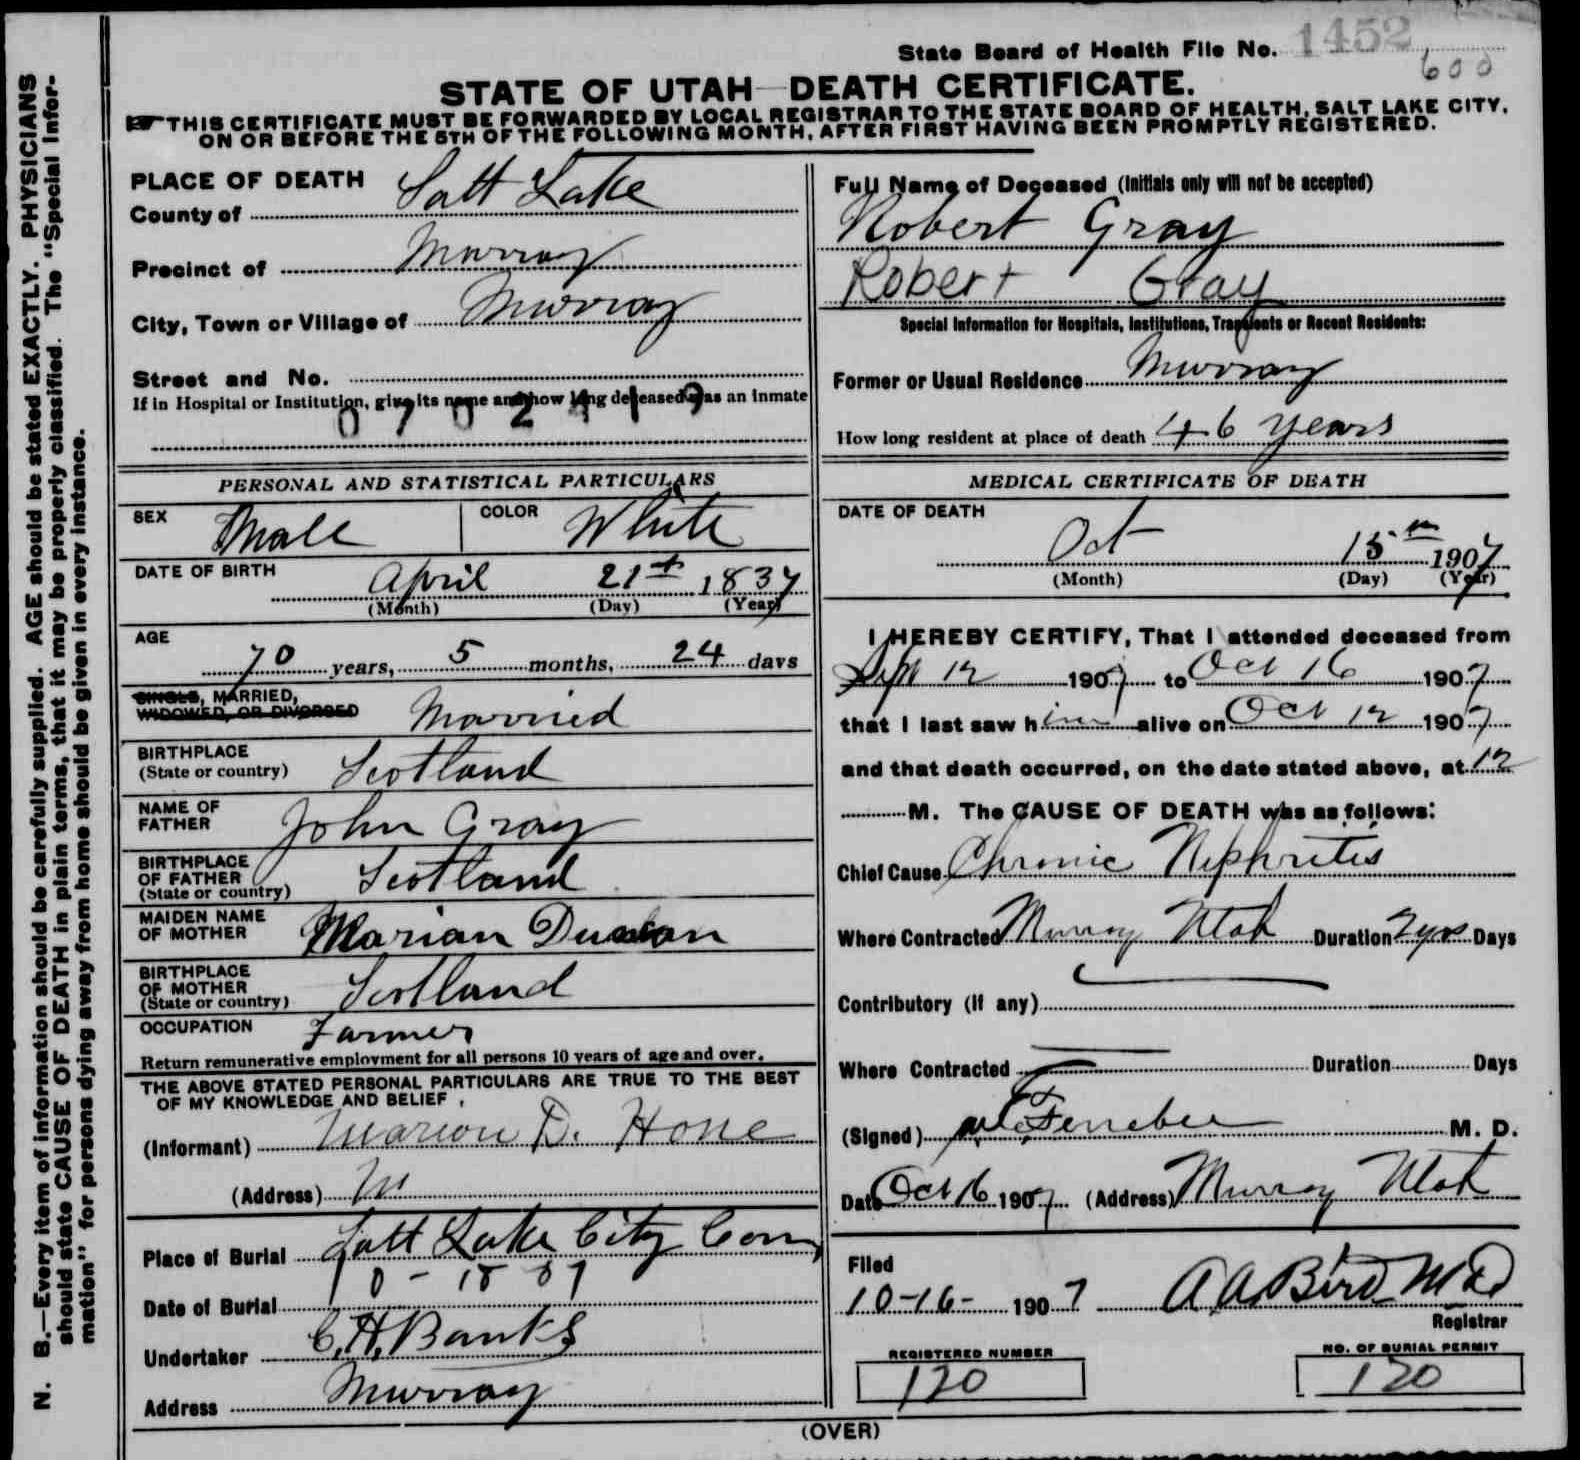 State Board of Health File No. 1452
600
STATE OF UTAH—DEATH CERTIFICATE.
THIS CERTIFICATE MUST BE FORWARDED BY LOCAL REGISTRAR TO THE STATE BOARD OF HEALTH, SALT LAKE CITY,
ON OR BEFORE THE 5TH OF THE FOLLOWING MONTH, AFTER FIRST HAVING BEEN PROMPTLY REGISTERED.
N. B.—Every item of information should be carefully supplied. AGE should be stated EXACTLY. PHYSICIANS
should state CAUSE OF DEATH in plain terms, that it may be properly classified. The "Special Infor-
mation" for persons dying away from home should be given in every instance.
PLACE OF DEATH
County of Salt Lake
Precinct of Murray
City, Town or Village of Murray
Street and No.
If in Hospital or Institution, give its name and how long deceased was an inmate
0702419
PERSONAL AND STATISTICAL PARTICULARS
SEX Male COLOR White
DATE OF BIRTH April 21st 1837
(Month) (Day) (Year)
AGE
70 years, 5 months, 24 days
SINGLE, MARRIED,
WIDOWED, OR DIVORCED Married
BIRTHPLACE
(State or country) Scotland
NAME OF
FATHER John Gray
BIRTHPLACE
OF FATHER
(State or country) Scotland
MAIDEN NAME
OF MOTHER Marian
BIRTHPLACE
OF MOTHER
(State or country) Scotland
OCCUPATION Farmer
Return remunerative employment for all persons 10 years of age and over.
THE ABOVE STATED PERSONAL PARTICULARS ARE TRUE TO THE BEST
OF MY KNOWLEDGE AND BELIEF,
(Informant) Marion D. Hone
(Address) M
Place of Burial Salt Lake City Cem,
Date of Burial 10-18 07
Undertaker C. H. Banks
Address Murray
Full Name of Deceased (Initials only will not be accepted)
Robert Gray
Robert Gray
Special Information for Hospitals, Institutions, Transients or Recent Residents:
Former or Usual Residence Murray
How long resident at place of death 46 years
MEDICAL CERTIFICATE OF DEATH
DATE OF DEATH
Oct 15th 1907
(Month) (Day) (Year)
I HEREBY CERTIFY, That I attended deceased from
Sept 12 1907 to Oct 16 1907
that I last saw him alive on Oct 12 1907
and that death occurred, on the date stated above, at 12
M. The CAUSE OF DEATH was as follows:
Chief Cause Chronic Nephritis
Where Contracted Murray Utah Duration 2 yrs Days
Contributory (if any)
Where Contracted Duration Days
(Signed) Ferrebee M. D.
Date Oct 16 1907 (Address) Murray Utah
Filed
10-16- 1907 A A Bird M D
Registrar
REGISTERED NUMBER
120
NO. OF BURIAL PERMIT
120
(OVER)